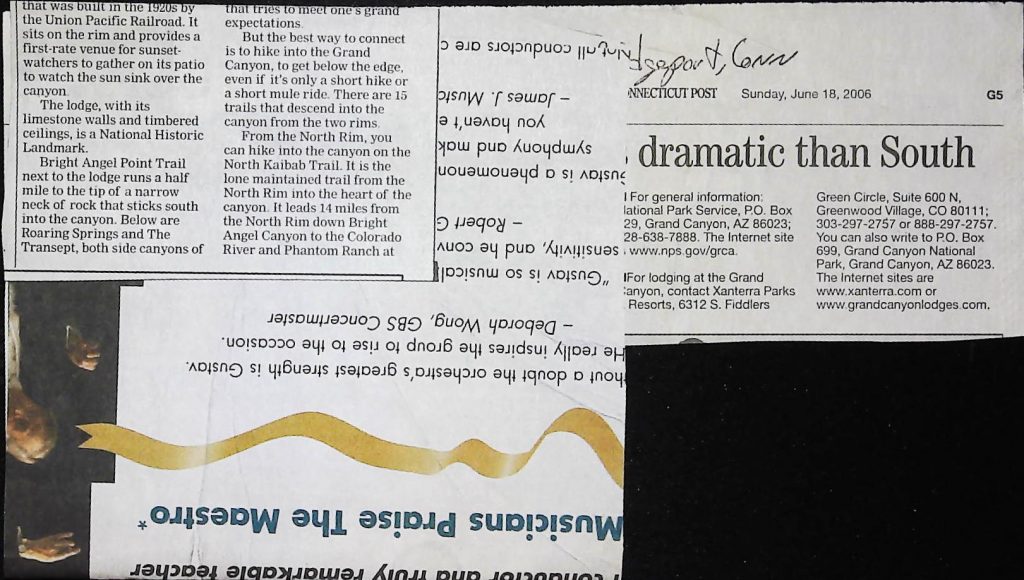 that was built in the 1920s by
the Union Pacific Railroad. It
sits on the rim and provides a
first-rate venue for sunset-
watchers to gather on its patio
to watch the sun sink over the
canyon.
The lodge, with its
limestone walls and timbered
ceilings, is a National Historic
Landmark.
Bright Angel Point Trail
next to the lodge runs a half
mile to the tip of a narrow
neck of rock that sticks south
into the canyon. Below are
Roaring Springs and The
Transept, both side canyons of
that tries to meet one's grand
expectations.
But the best way to connect
is to hike into the Grand
Canyon, to get below the edge,
even if it's only a short hike or
a short mule ride. There are 15
trails that descend into the
canyon from the two rims.
From the North Rim, you
can hike into the canyon on the
North Kaibab Trail. It is the
lone maintained trail from the
North Rim into the heart of the
canyon. It leads 14 miles from
the North Rim down Bright
Angel Canyon to the Colorado
River and Phantom Ranch at
Conn
NNECTICUT POST Sunday, June 18, 2006 G5
dramatic than South
For general information:
ational Park Service, P.O. Box
29, Grand Canyon, AZ 86023;
28-638-7888. The Internet site
www.nps.gov/grca.
For lodging at the Grand
anyon, contact Xanterra Parks
Resorts, 6312 S. Fiddlers
Green Circle, Suite 600 N,
Greenwood Village, CO 80111;
303-297-2757 or 888-297-2757.
You can also write to P.O. Box
699, Grand Canyon National
Park, Grand Canyon, AZ 86023.
The Internet sites are
www.xanterra.com or
www.grandcanyonlodges.com.
conductor and truly remarkable teacher
Musicians Praise The Maestro*
hout a doubt the orchestra's greatest strength is Gustav.
He really inspires the group to rise to the occasion.
– Deborah Wong, GBS Concertmaster
"Gustav is so musical
sensitivity, and he conv
– Robert G
Gustav is a phenomenon
symphony and mak
you haven't e
– James J. Musto
all conductors are